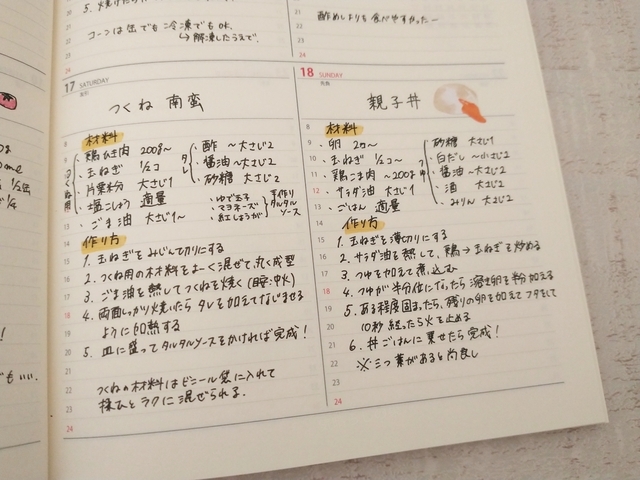 コーンは缶でも冷凍でもOK.
↳解凍したうえで.
酢めしよりも食べやすかったー
17 SATURDAY
つくね 南蛮
材料
つくね用
・鶏ひき肉 200g〜
・玉ねぎ 1/2コ
・片栗粉 大さじ1
・塩こしょう 適量
・ごま油 大さじ1〜
タレ
・酢 〜大さじ2
・醤油 〜大さじ2
・砂糖 大さじ2
・ゆで玉子
・マヨネーズ
・紅しょうが
手作りタルタルソース
作り方
1. 玉ねぎをみじん切りにする
2. つくね用の材料をよーく混ぜて丸く成型
3. ごま油を熱してつくねを焼く(中火)
4. 両面しっかり焼いたらタレを加えてなじませる
ように加熱する
5. 皿に盛ってタルタルソースをかければ完成!
つくねの材料はビニール袋に入れて
揉むとラクに混ぜられる.
18 SUNDAY
親子丼
材料
・卵 2コ〜
・玉ねぎ 1/2コ〜
・鶏こま肉 〜200g
・サラダ油 大さじ1
・ごはん 適量
つゆ
砂糖 大さじ1
・白だし 〜小さじ2
・醤油 〜大さじ2
・酒 大さじ2
・みりん 大さじ2
作り方
1. 玉ねぎを薄切りにする
2. サラダ油を熱して、鶏→玉ねぎを炒める
3. つゆを加えて煮込む
4. つゆが半分位になったら溶き卵を半分加える
5. ある程度固まったら、残りの卵を加えてフタをして
10秒経ったら火を止める
6. 丼ごはんに乗せたら完成!
※三つ葉があると尚良し